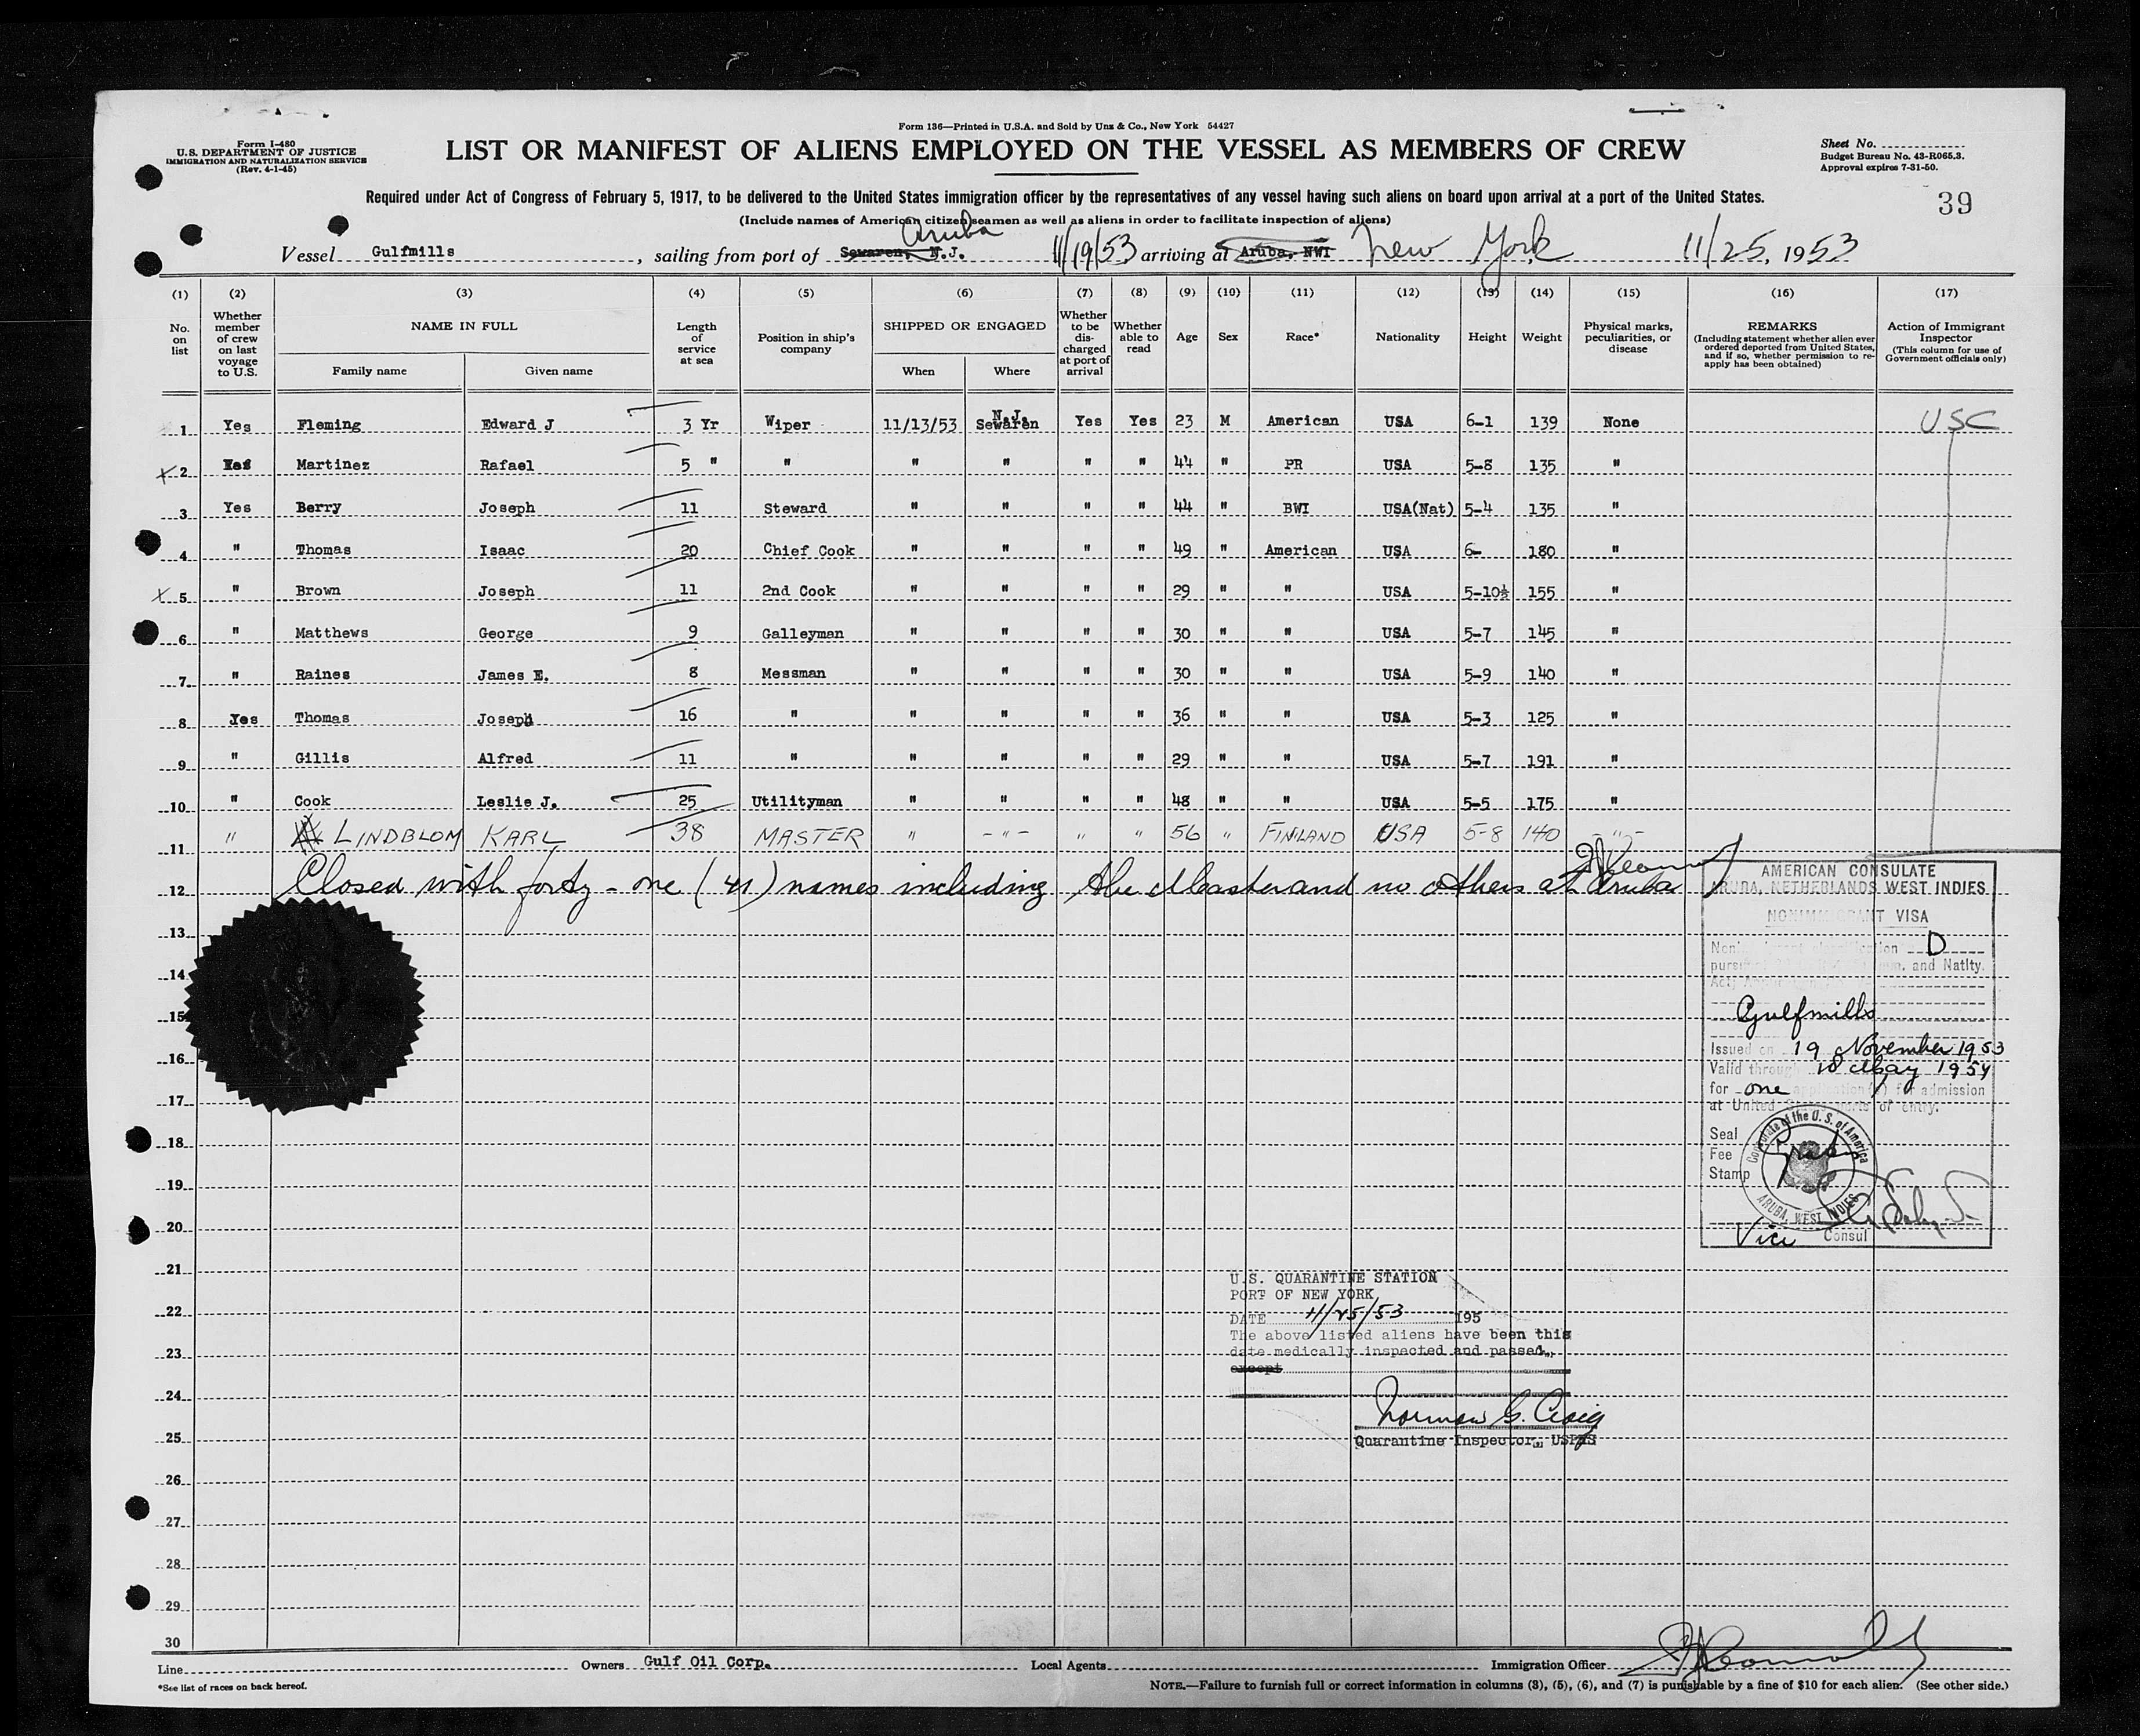 Form 136—Printed in U.S.A. and Sold by Unz & Co., New York 54427
Form I-480
U.S. DEPARTMENT OF JUSTICE
IMMIGRATION AND NATURALIZATION SERVICE
(Rev. 4-1-45)
LIST OR MANIFEST OF ALIENS EMPLOYED ON THE VESSEL AS MEMBERS OF CREW
Sheet No.
Budget Bureau No. 43-R065.3.
Approval expires 7-31-50.
Required under Act of Congress of February 5, 1917, to be delivered to the United States immigration officer by the representatives of any vessel having such aliens on board upon arrival at a port of the United States.
39
(Include names of American citizen seamen as well as aliens in order to facilitate inspection of aliens)
Aruba
Vessel Gulfmills, sailing from port of Sewaren, N.J. 11/19/53 arriving at Aruba, NWI New York 11/25, 1953
(1) (2) (3) (4) (5) (6) (7) (8) (9) (10) (11) (12) (13) (14) (15) (16) (17)
No. on list
Whether member of crew on last voyage to U.S.
NAME IN FULL
Family name Given name
Length of service at sea
Position in ship's company
SHIPPED OR ENGAGED
When Where
Whether to be discharged at port of arrival
Whether able to read
Age
Sex
Race*
Nationality
Height
Weight
Physical marks, peculiarities, or disease
REMARKS
(Including statement whether alien ever ordered deported from United States, and if so, whether permission to reapply has been obtained)
Action of Immigrant Inspector
(This column for use of Government officials only)
1 Yes Fleming Edward J 3 Yr Wiper 11/13/53 N.J. Sewaren Yes Yes 23 M American USA 6-1 139 None USC
x 2 Yes Martinez Rafael 5 " " " " " " 44 " PR USA 5-8 135 "
3 Yes Berry Joseph 11 Steward " " " " 44 " BWI USA(Nat) 5-4 135 "
4 " Thomas Isaac 20 Chief Cook " " " " 49 " American USA 6- 180 "
x 5 " Brown Joseph 11 2nd Cook " " " " 29 " " USA 5-10½ 155 "
6 " Matthews George 9 Galleyman " " " " 30 " " USA 5-7 145 "
7 " Raines James E. 8 Messman " " " " 30 " " USA 5-9 140 "
8 Yes Thomas Joseph 16 " " " " " 36 " " USA 5-3 125 "
9 " Gillis Alfred 11 " " " " " 29 " " USA 5-7 191 "
10 " Cook Leslie J. 25 Utilityman " " " " 48 " " USA 5-5 175 "
11 " LINDBLOM KARL 38 MASTER " -"- " " 56 " FINLAND USA 5-8 140 -"-
12 Closed with forty-one (41) names including the Master and no others at Aruba
13
14
15
16
17
18
19
20
21
22
23
24
25
26
27
28
29
30
AMERICAN CONSULATE
ARUBA, NETHERLANDS WEST INDIES
NONIMMIGRANT VISA
Nonimmigrant classification D
pursuant and Natlty.
Act
Gulfmills
Issued on 19 November 1953
Valid through 18 May 1954
for one application(s) for admission
at United States ports of entry.
Seal
Fee
Stamp
Consulate of the U.S. of America
ARUBA, WEST INDIES
Vice Consul
U.S. QUARANTINE STATION
PORT OF NEW YORK
DATE 11/25/53 195
The above listed aliens have been this
date medically inspected and passed,
except
Norman G. Craig
Quarantine Inspector, USPHS
Line Owners Gulf Oil Corp. Local Agents Immigration Officer
*See list of races on back hereof.
NOTE.—Failure to furnish full or correct information in columns (3), (5), (6), and (7) is punishable by a fine of $10 for each alien. (See other side.)